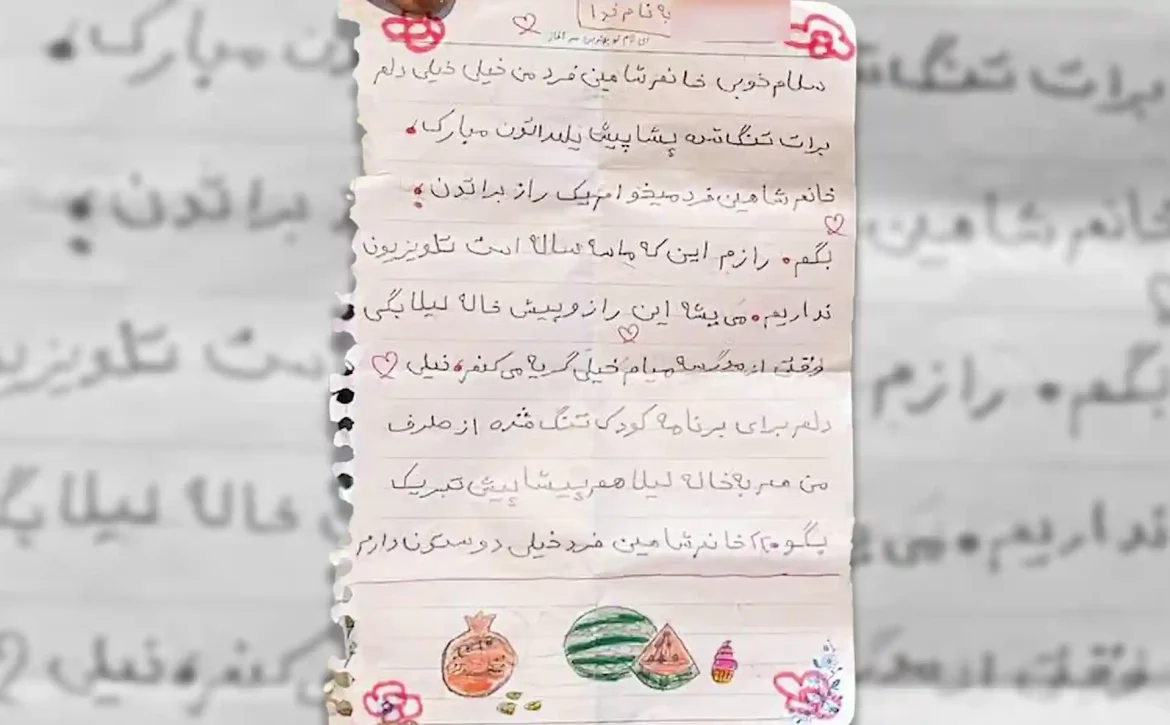 به نام خدا
ای نام تو بهترین سر آغاز
سلام خوبی خانم شاهین فرد من خیلی خیلی دلم
برات تنگ شده پیشاپیش یلداتون مبارک.
خانم شاهین فرد میخوام یک راز براتون
بگم. رازم این که ماسه ساله است تلویزیون
نداریم. می‌شه این راز و پیش خاله لیلا بگی
وقتی از مدرسه میام خیلی گریه می‌کنم. خیلی
دلم برای برنامه کودک تنگ شده از طرف
من هم به خاله لیلا هم پیشاپیش تبریک
بگو. خانم شاهین فرد خیلی دوستون دارم